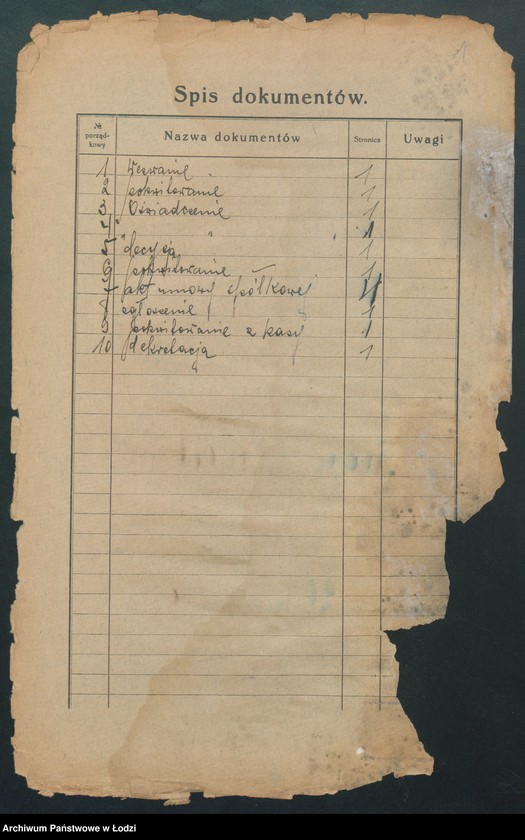 1
Spis dokumentów.
№ porząd-kowy Nazwa dokumentów Stronica Uwagi
1 Wezwanie 1
2 pokwitowanie 1
3 Oświadczenie 1
4 " " 1
5 decyzja 1
6 pokwitowanie 1
7 akt umowy spółkowej
8 zgłoszenie 1
9 pokwitowanie z kasy 1
10 dekretacja 1
Archiwum Państwowe w Łodzi